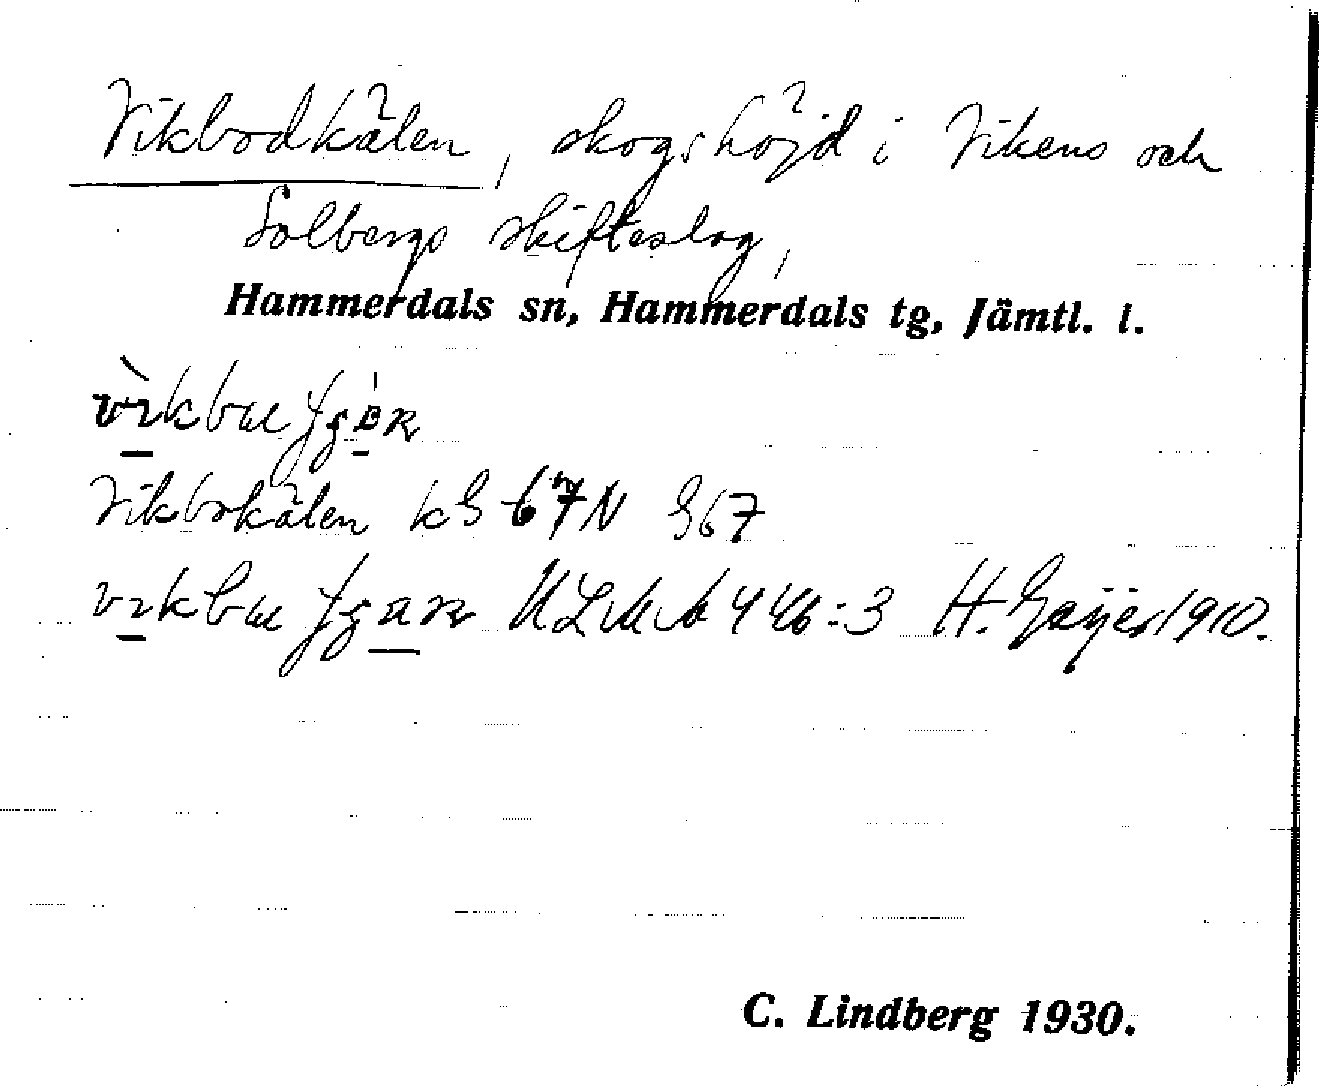 Vikbodkälen, skogshöjd i Vikens och
Solbergs skifteslag,
Hammerdals sn, Hammerdals tg, Jämtl. l.
Vikbokälen kG 67 N G67
ULMA 446:3 H. Geijer 1910.
C. Lindberg 1930.